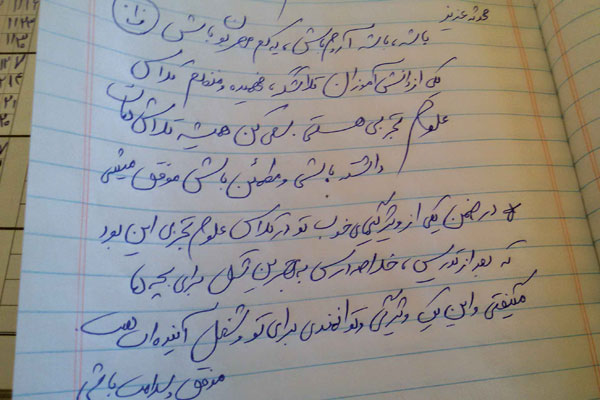 محدثه عزیز
باشه، باشه آروم باش، یه کم مهربون تر باش
یکی از دانش آموزان تلاشگر، فهمیده و منظم کلاس
علوم تجربی هستی. سعی کن همیشه تلاش
داشته باشی و مطمئن باش موفق میشی
* در ضمن یکی از ویژگیهای خوب تو در کلاس علوم تجربی این بود
که بعد از تدریس، خلاصه درس به بهترین شکل برای بچه ها
میگفتی و این یک ویژگی و توانمندی برای تو و شغل آینده ات هست.
موفق و سلامت باشی